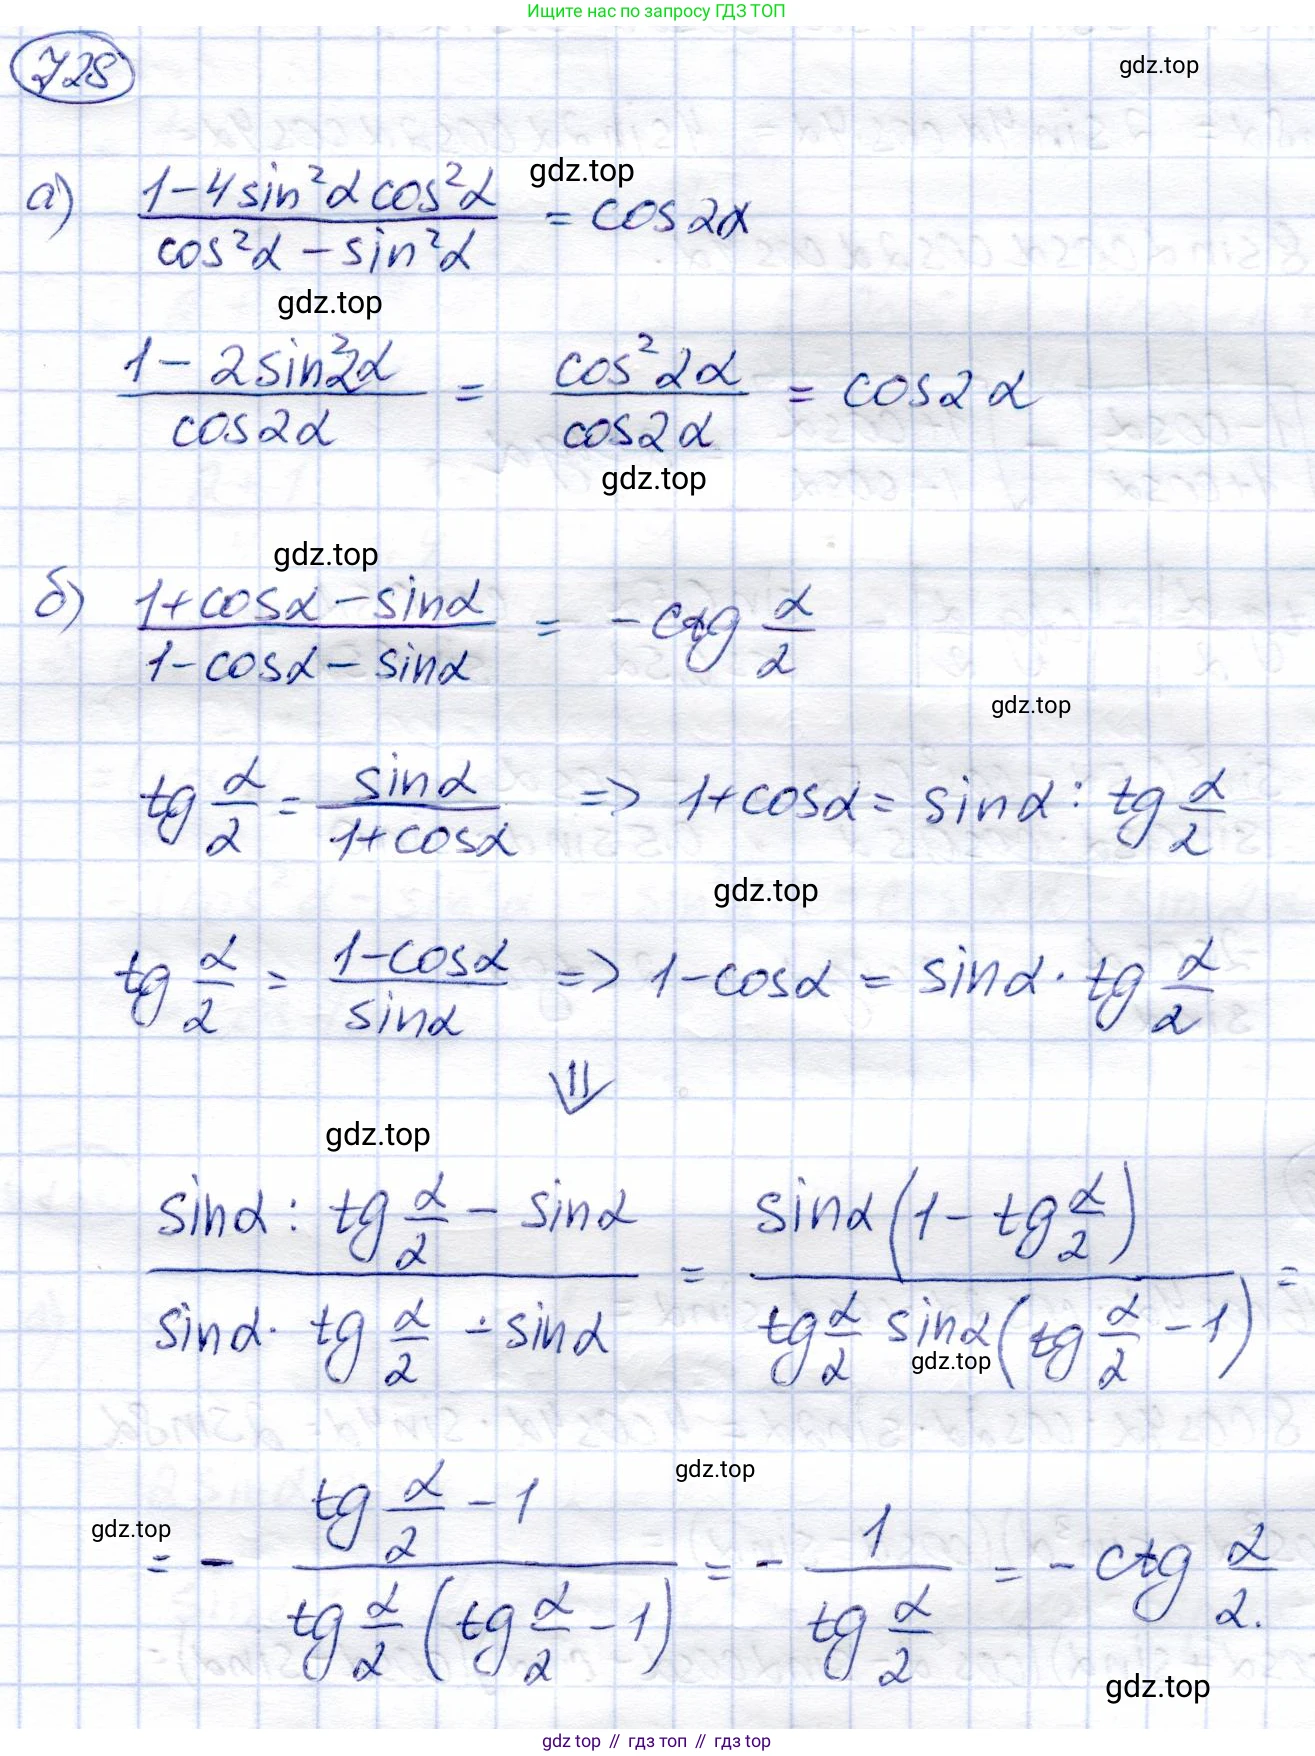 Ищите нас по запросу ГДЗ ТОП
728
gdz.top
а) (1-4sin²α cos²α)/(cos²α - sin²α) = cos2α
gdz.top
gdz.top
(1 - 2sin²2α)/(cos2α) = (cos²2α)/(cos2α) = cos2α
gdz.top
gdz.top
б) (1+cosα-sinα)/(1-cosα-sinα) = -ctg α/2
gdz.top
tg α/2 = sinα/(1+cosα) => 1+cosα = sinα : tg α/2
gdz.top
tg α/2 = (1-cosα)/sinα => 1-cosα = sinα · tg α/2
⇓
gdz.top
(sinα : tg α/2 - sinα)/(sinα · tg α/2 - sinα) = (sinα(1 - tg α/2))/(tg α/2 sinα(tg α/2 - 1)) =
gdz.top
gdz.top
gdz.top
= - (tg α/2 - 1)/(tg α/2 (tg α/2 - 1)) = - 1/(tg α/2) = - ctg α/2.
gdz.top
gdz top // гдз топ // gdz top